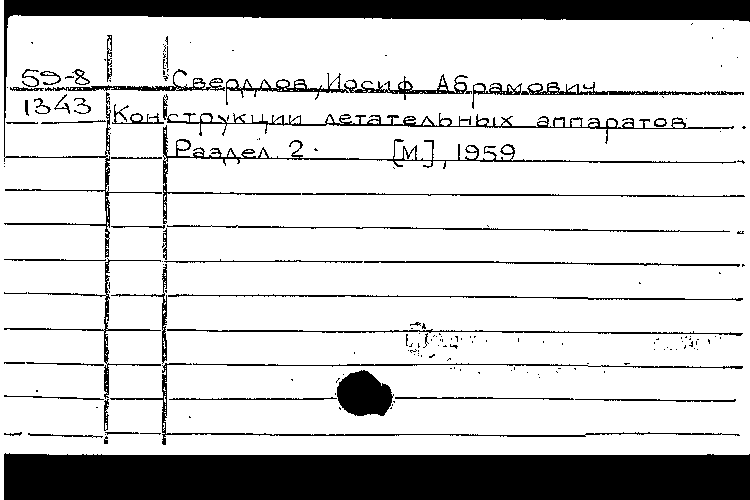 59-8 Свердлов, Иосиф Абрамович
1343 Конструкции летательных аппаратов.
Раздел 2. [М.], 1959